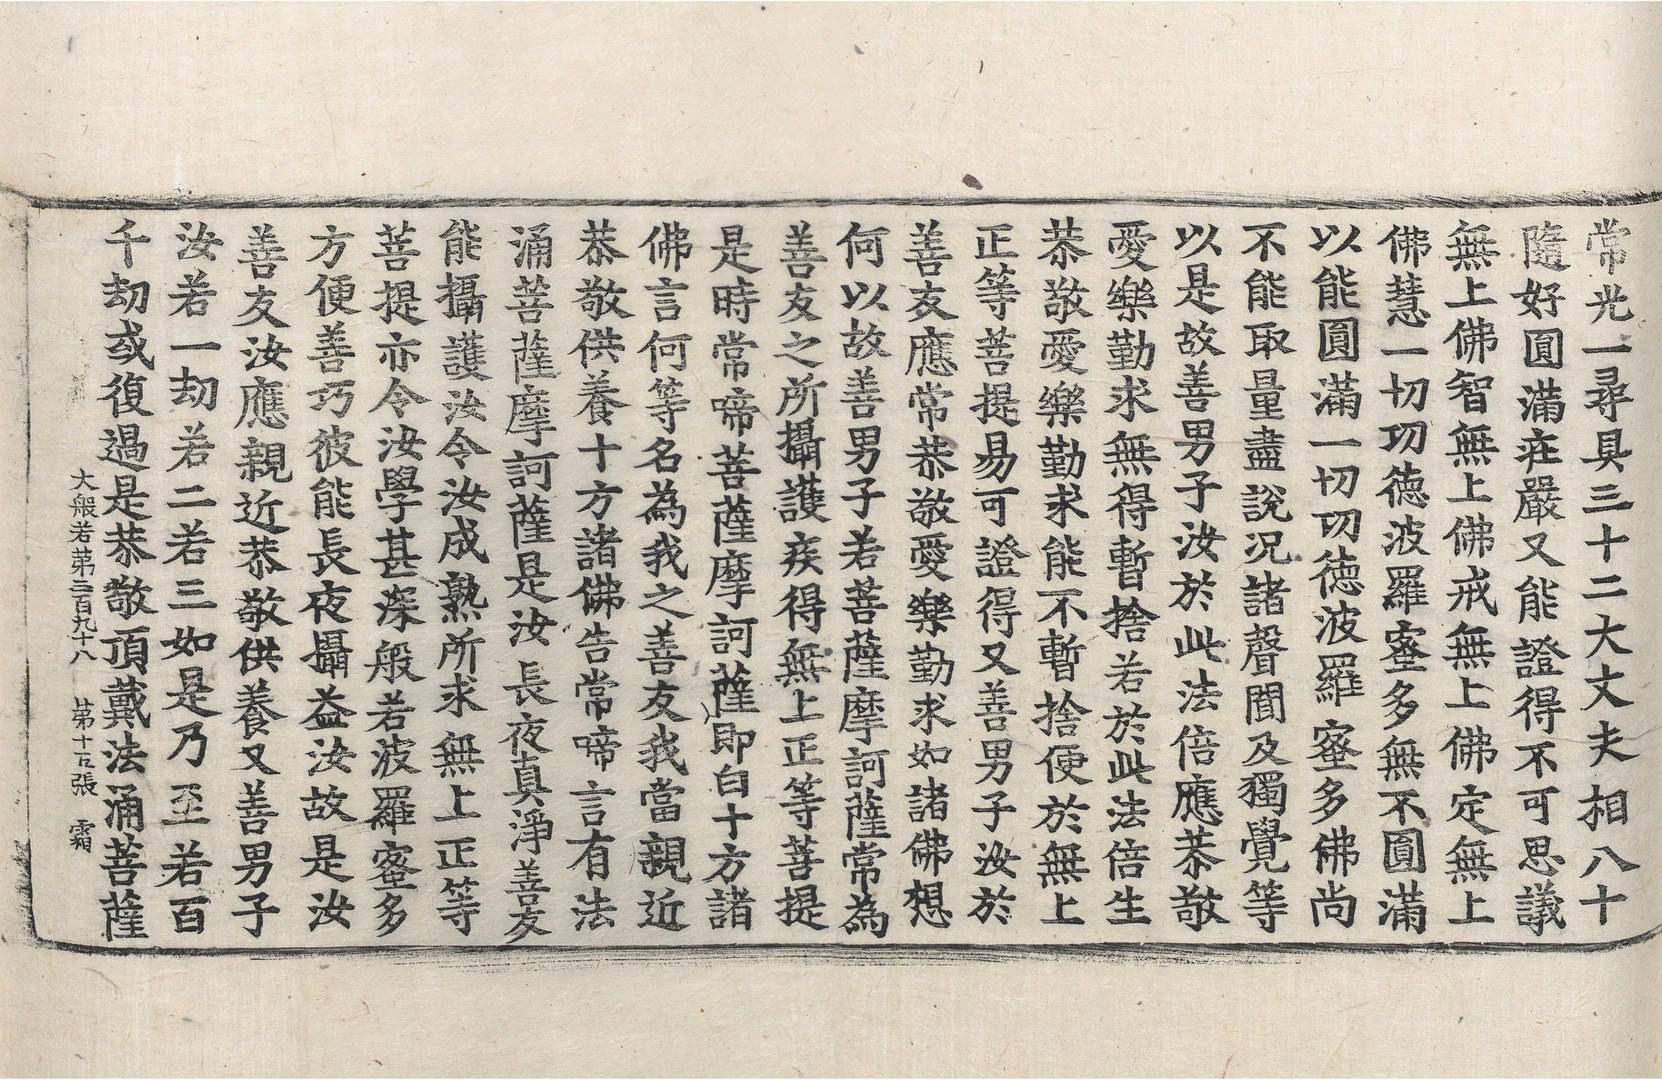 常光一尋具三十二大丈夫相八十
隨好圓滿莊嚴又能證得不可思議
無上佛智無上佛戒無上佛定無上
佛慧一切功德波羅蜜多無不圓滿
以能圓滿一切功德波羅蜜多佛尚
不能取量盡說況諸聲聞及獨覺等
以是故善男子汝於此法倍應恭敬
愛樂勤求無得暫捨若於此法倍生
恭敬愛樂勤求能不暫捨便於無上
正等菩提易可證得又善男子汝於
善友應常恭敬愛樂勤求如諸佛想
何以故善男子若菩薩摩訶薩常為
善友之所攝護疾得無上正等菩提
是時常啼菩薩摩訶薩即白十方諸
佛言何等名為我之善友我當親近
恭敬供養十方諸佛告常啼言有法
涌菩薩摩訶薩是汝長夜真淨善友
能攝護汝令汝成熟所求無上正等
菩提亦令汝學甚深般若波羅蜜多
方便善巧彼能長夜攝益汝故是汝
善友汝應親近恭敬供養又善男子
汝若一劫若二若三如是乃至若百
千劫或復過是恭敬頂戴法涌菩薩
大般若第三百九十八 第十五張 霜